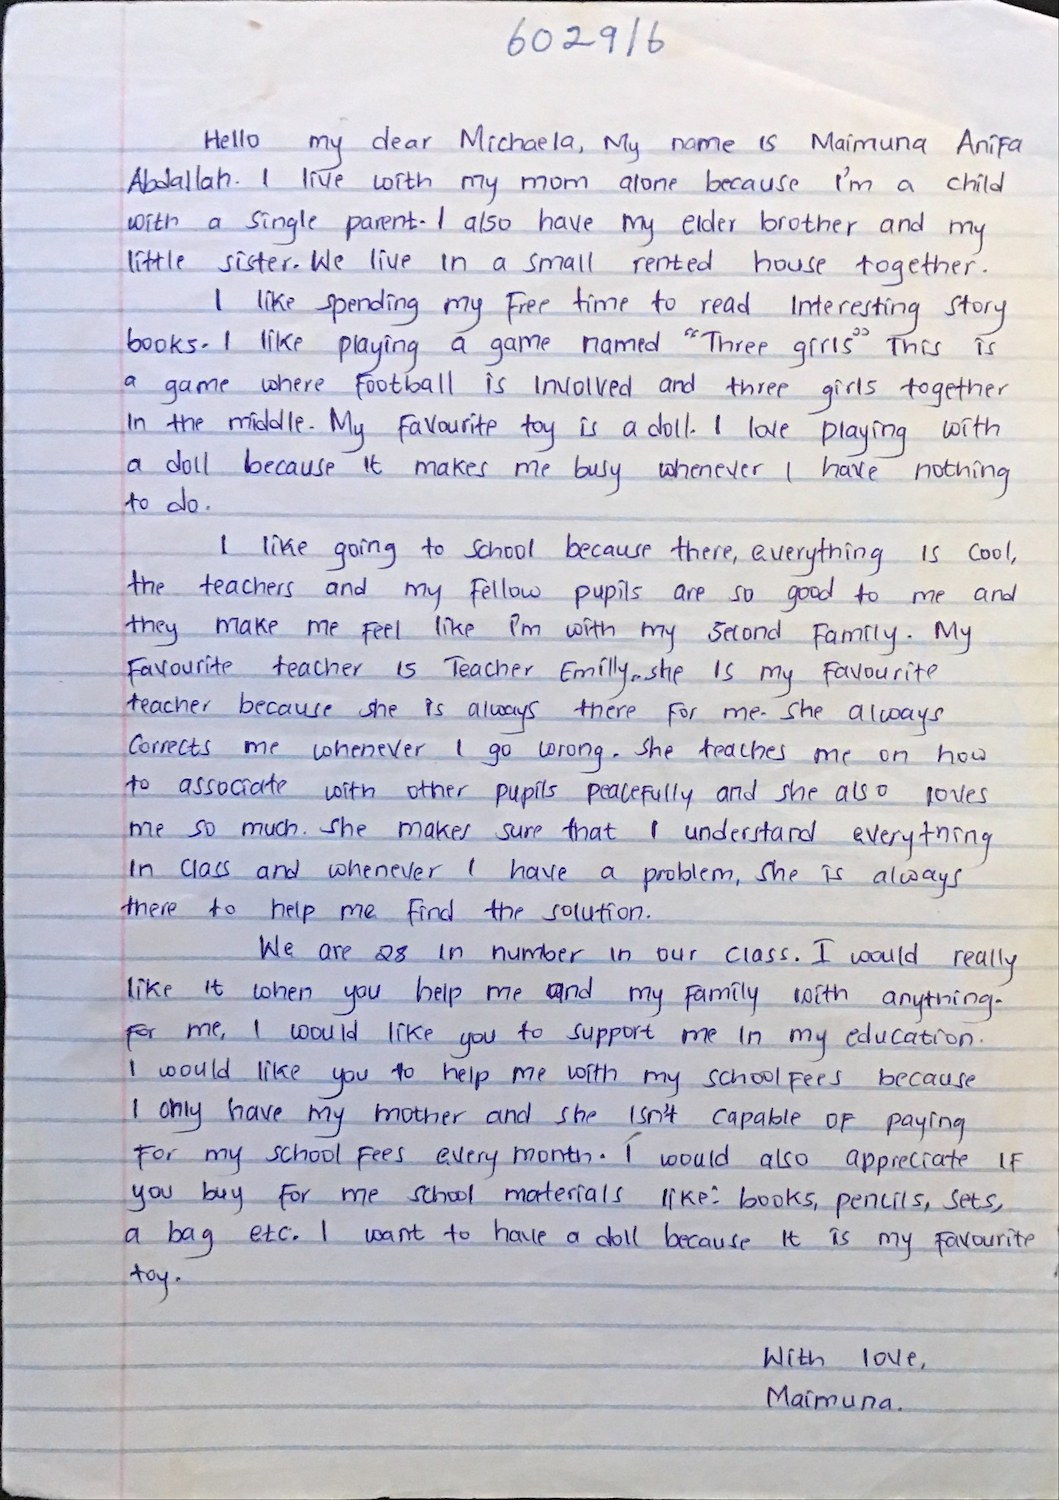 6029/6
Hello my dear Michaela, My name is Maimuna Anifa
Abdallah. I live with my mom alone because I'm a child
with a single parent. I also have my elder brother and my
little sister. We live in a small rented house together.
I like spending my free time to read interesting story
books. I like playing a game named "Three girls" This is
a game where football is involved and three girls together
in the middle. My favourite toy is a doll. I love playing with
a doll because it makes me busy whenever I have nothing
to do.
I like going to school because there, everything is cool,
the teachers and my fellow pupils are so good to me and
they make me feel like I'm with my second family. My
favourite teacher is Teacher Emilly. she is my favourite
teacher because she is always there for me. She always
corrects me whenever I go wrong. She teaches me on how
to associate with other pupils peacefully and she also loves
me so much. She makes sure that I understand everything
in class and whenever I have a problem, she is always
there to help me find the solution.
We are 28 in number in our class. I would really
like it when you help me and my family with anything.
for me, I would like you to support me in my education.
I would like you to help me with my school fees because
I only have my mother and she isn't capable of paying
for my school fees every month. I would also appreciate if
you buy for me school materials like: books, pencils, sets,
a bag etc. I want to have a doll because it is my favourite
toy.
With love,
Maimuna.